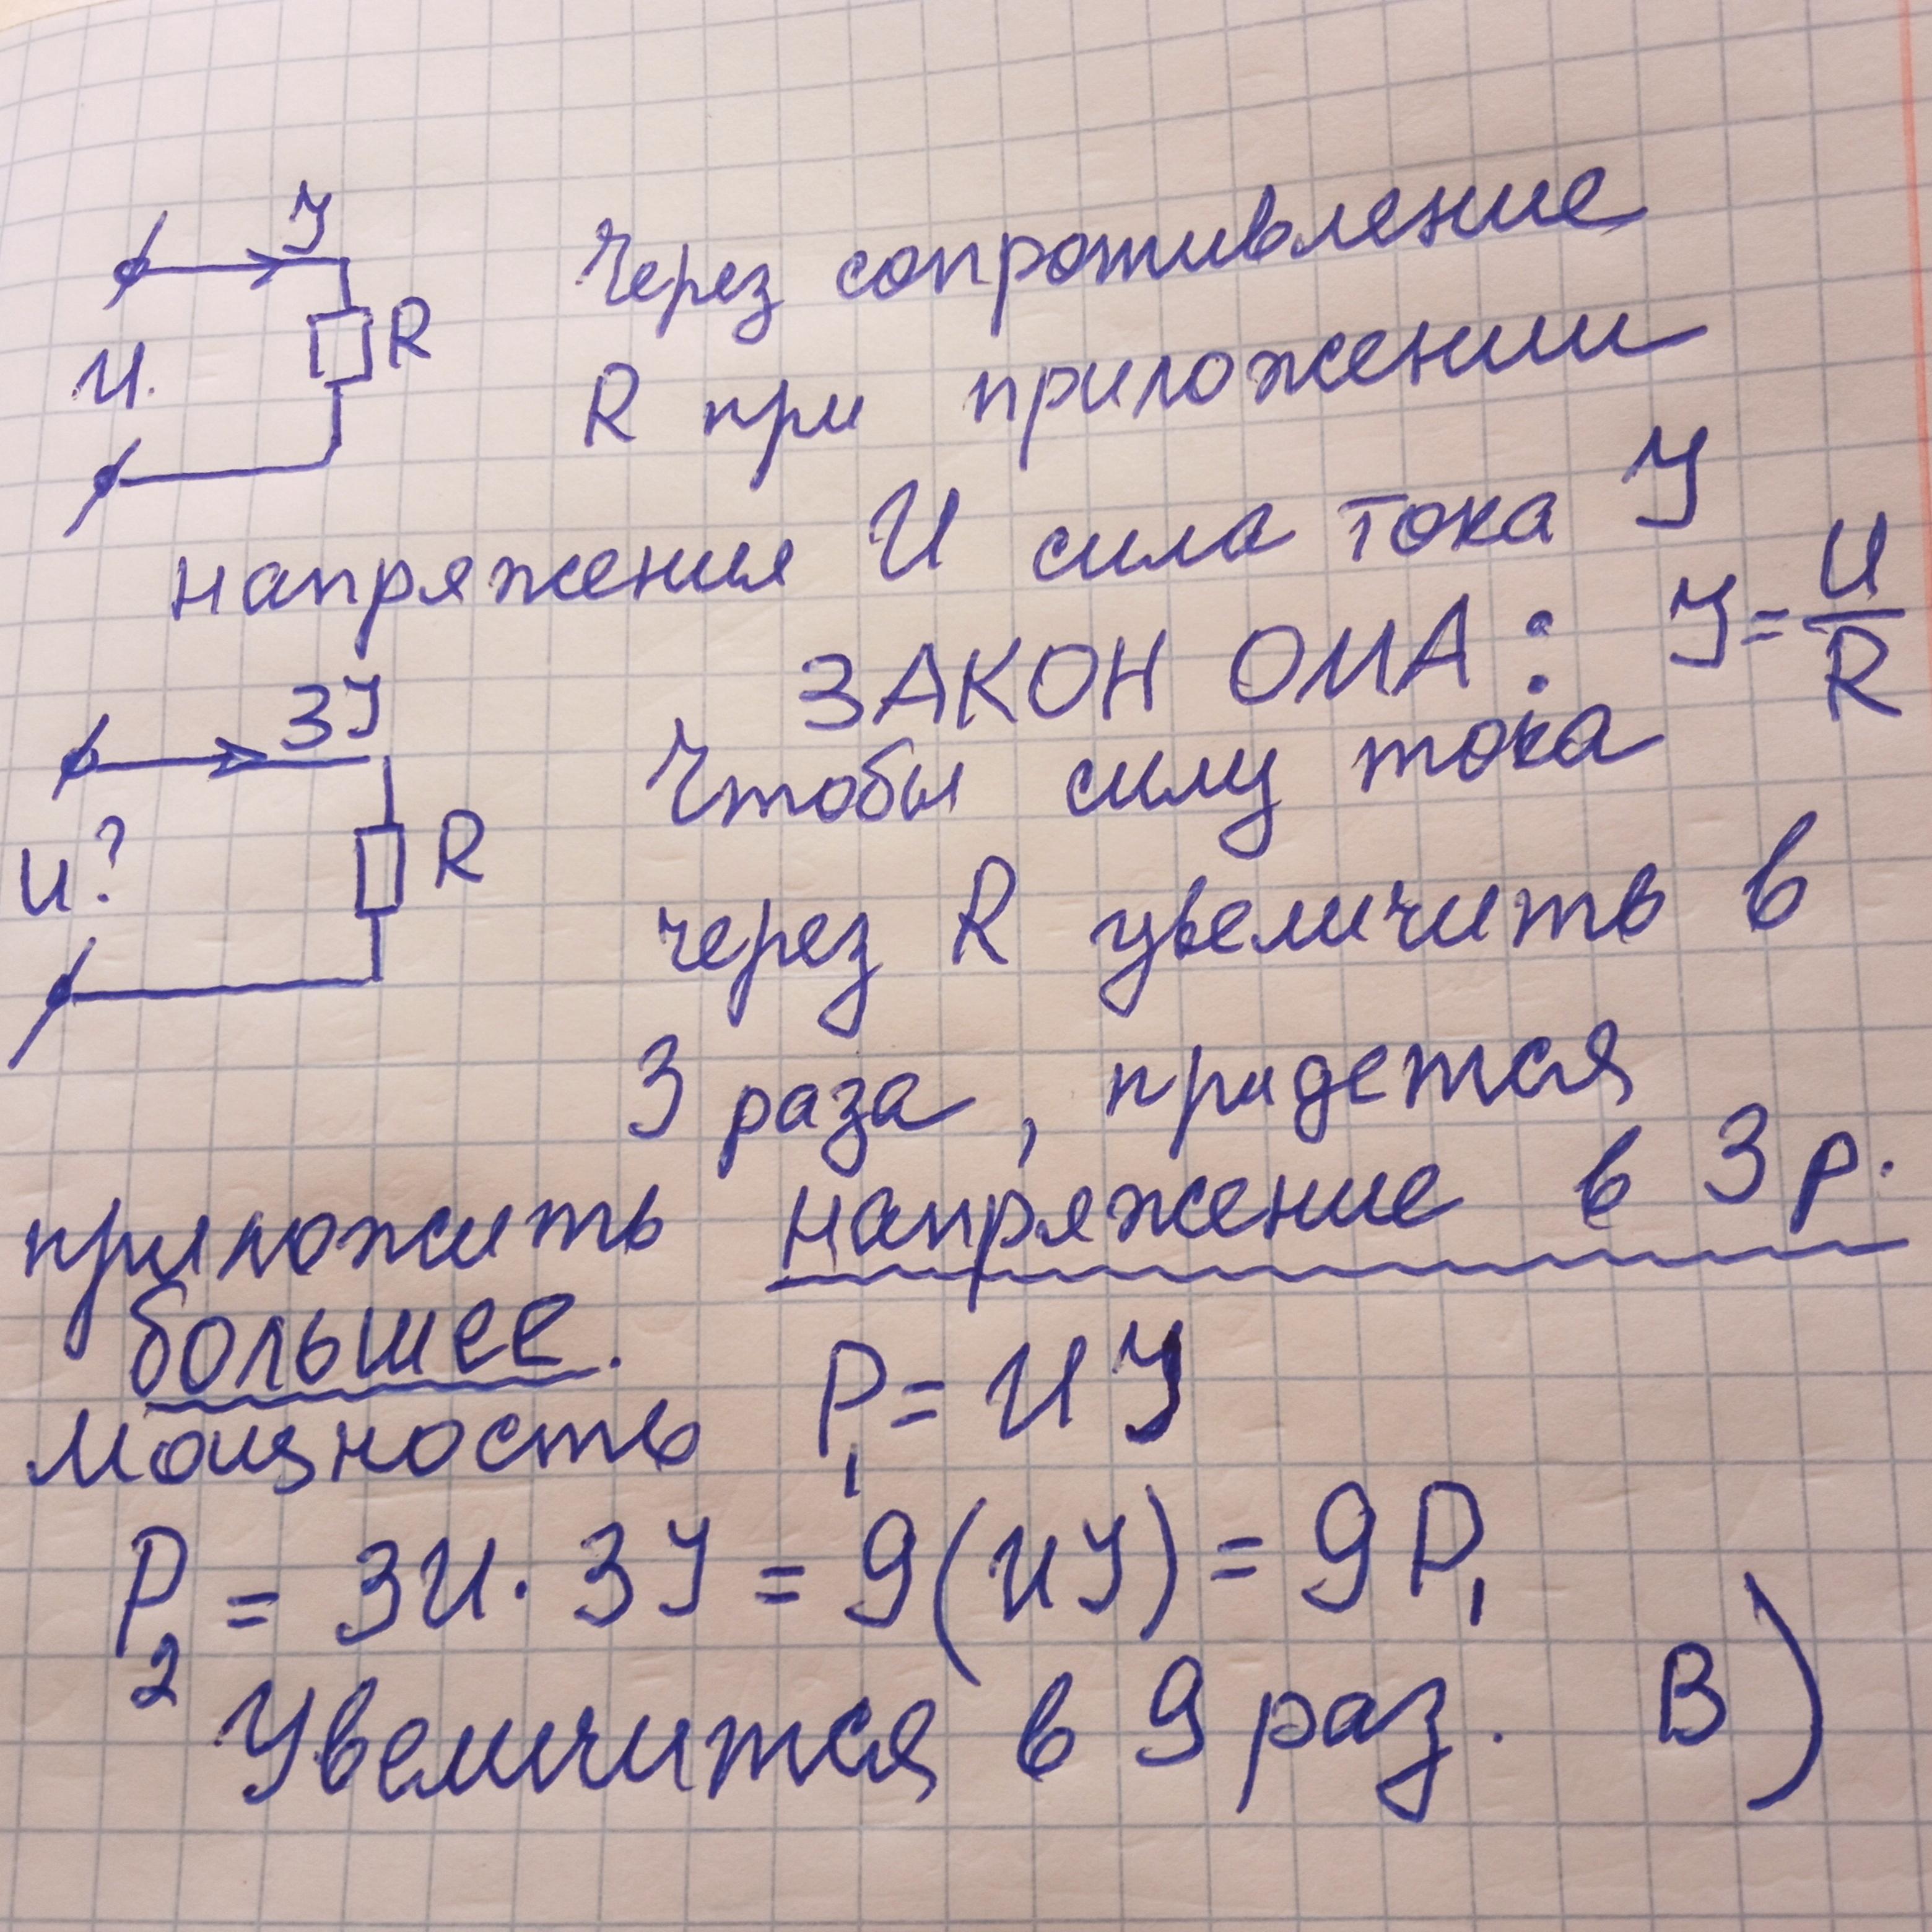 У
Через сопротивление
U.
R
R при приложении
напряжения U сила тока У
ЗАКОН ОМА: У = U/R
3У
Чтобы силу тока
U?
R
через R увеличить в
3 раза, придется
приложить напряжение в 3 р.
большее.
Мощность P₁ = UУ
P₂ = 3U · 3У = 9(UУ) = 9P₁
Увеличится в 9 раз. В)